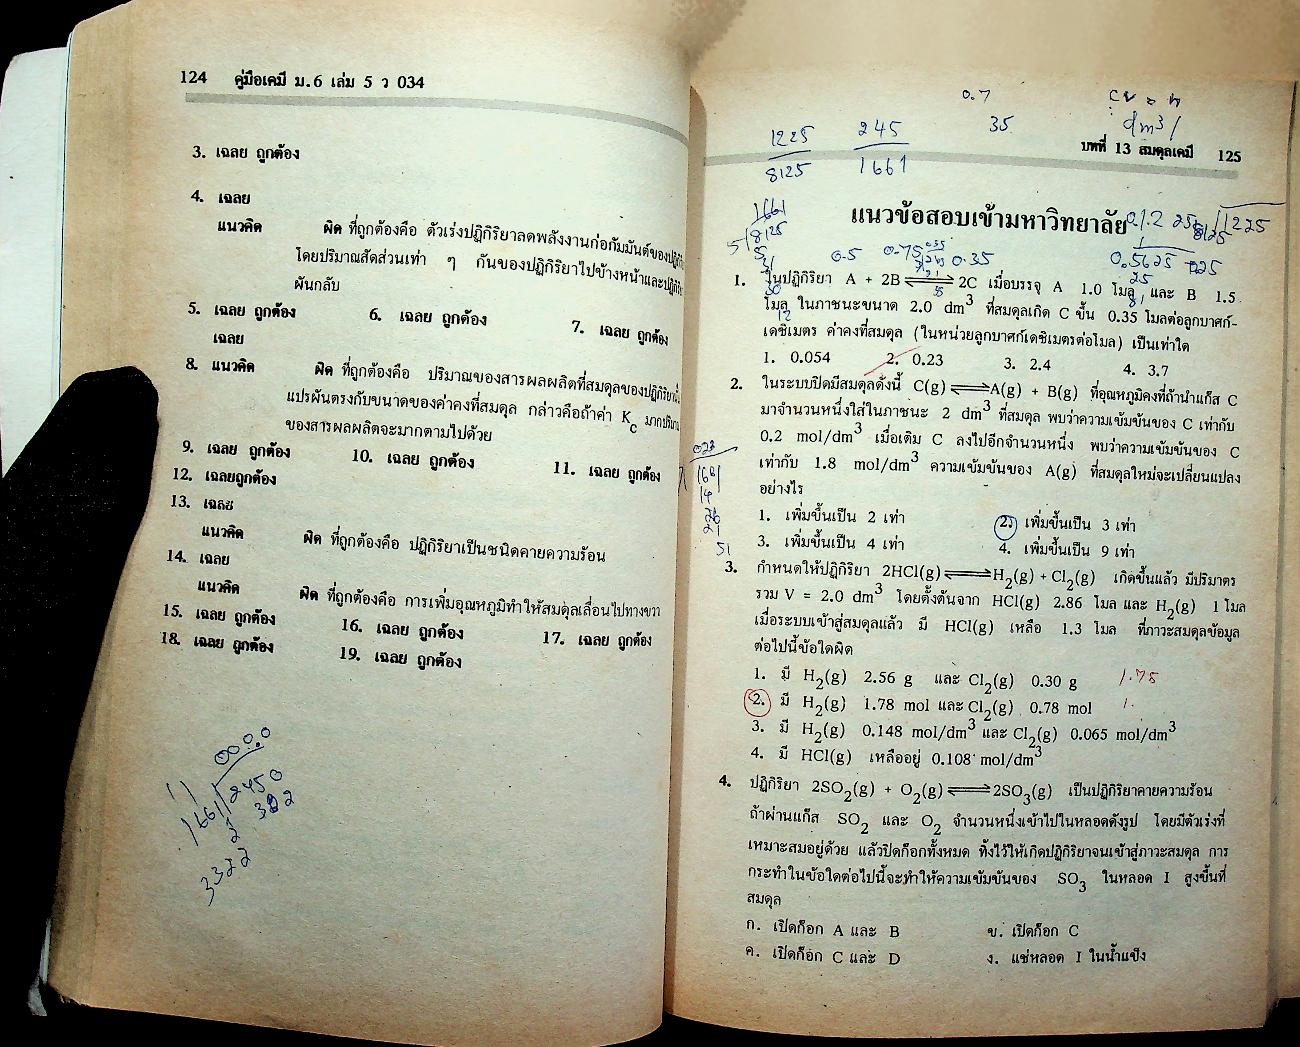 124 คู่มือเคมี ม.6 เล่ม 5 ว 034
3. เฉลย ถูกต้อง
4. เฉลย
แนวคิด ผิด ที่ถูกต้องคือ ตัวเร่งปฏิกิริยาลดพลังงานก่อกัมมันต์ของปฏิกิริ
โดยปริมาณสัดส่วนเท่า ๆ กันของปฏิกิริยาไปข้างหน้าและปฏิกิริ
ผันกลับ
5. เฉลย ถูกต้อง 6. เฉลย ถูกต้อง 7. เฉลย ถูกต้อง
เฉลย
8. แนวคิด ผิด ที่ถูกต้องคือ ปริมาณของสารผลผลิตที่สมดุลของปฏิกิริยา
แปรผันตรงกับขนาดของค่าคงที่สมดุล กล่าวคือถ้าค่า Kc มากปริมาณ
ของสารผลผลิตจะมากตามไปด้วย
9. เฉลย ถูกต้อง 10. เฉลย ถูกต้อง 11. เฉลย ถูกต้อง
12. เฉลยถูกต้อง
13. เฉลย
แนวคิด ผิด ที่ถูกต้องคือ ปฏิกิริยาเป็นชนิดคายความร้อน
14. เฉลย
แนวคิด ผิด ที่ถูกต้องคือ การเพิ่มอุณหภูมิทำให้สมดุลเลื่อนไปทางขวา
15. เฉลย ถูกต้อง 16. เฉลย ถูกต้อง 17. เฉลย ถูกต้อง
18. เฉลย ถูกต้อง 19. เฉลย ถูกต้อง
1661 2450
3322
0.7
35
dm3/
1225
8125
245
1661
บทที่ 13 สมดุลเคมี 125
แนวข้อสอบเข้ามหาวิทยาลัย
0.5 0.75 0.35 0.5625
1. ในปฏิกิริยา A + 2B ⇌ 2C เมื่อบรรจุ A 1.0 โมล และ B 1.5
โมล ในภาชนะขนาด 2.0 dm3 ที่สมดุลเกิด C ขึ้น 0.35 โมลต่อลูกบาศก์-
เดซิเมตร ค่าคงที่สมดุล (ในหน่วยลูกบาศก์เดซิเมตรต่อโมล) เป็นเท่าใด
1. 0.054 2. 0.23 3. 2.4 4. 3.7
2. ในระบบปิดมีสมดุลดังนี้ C(g) ⇌ A(g) + B(g) ที่อุณหภูมิคงที่ถ้านำแก๊ส C
มาจำนวนหนึ่งใส่ในภาชนะ 2 dm3 ที่สมดุล พบว่าความเข้มข้นของ C เท่ากับ
0.2 mol/dm3 เมื่อเติม C ลงไปอีกจำนวนหนึ่ง พบว่าความเข้มข้นของ C
เท่ากับ 1.8 mol/dm3 ความเข้มข้นของ A(g) ที่สมดุลใหม่จะเปลี่ยนแปลง
อย่างไร
1. เพิ่มขึ้นเป็น 2 เท่า 2. เพิ่มขึ้นเป็น 3 เท่า
3. เพิ่มขึ้นเป็น 4 เท่า 4. เพิ่มขึ้นเป็น 9 เท่า
3. กำหนดให้ปฏิกิริยา 2HCl(g) ⇌ H2(g) + Cl2(g) เกิดขึ้นแล้ว มีปริมาตร
รวม V = 2.0 dm3 โดยตั้งต้นจาก HCl(g) 2.86 โมล และ H2(g) 1 โมล
เมื่อระบบเข้าสู่สมดุลแล้ว มี HCl(g) เหลือ 1.3 โมล ที่ภาวะสมดุลข้อมูล
ต่อไปนี้ข้อใดผิด
1. มี H2(g) 2.56 g และ Cl2(g) 0.30 g 1.75
2. มี H2(g) 1.78 mol และ Cl2(g) 0.78 mol
3. มี H2(g) 0.148 mol/dm3 และ Cl2(g) 0.065 mol/dm3
4. มี HCl(g) เหลืออยู่ 0.108 mol/dm3
4. ปฏิกิริยา 2SO2(g) + O2(g) ⇌ 2SO3(g) เป็นปฏิกิริยาคายความร้อน
ถ้าผ่านแก๊ส SO2 และ O2 จำนวนหนึ่งเข้าไปในหลอดดังรูป โดยมีตัวเร่งที่
เหมาะสมอยู่ด้วย แล้วปิดก๊อกทั้งหมด ทิ้งไว้ให้เกิดปฏิกิริยาจนเข้าสู่ภาวะสมดุล การ
กระทำในข้อใดต่อไปนี้จะทำให้ความเข้มข้นของ SO3 ในหลอด I สูงขึ้นที่
สมดุล
ก. เปิดก๊อก A และ B ข. เปิดก๊อก C
ค. เปิดก๊อก C และ D ง. แช่หลอด I ในน้ำแข็ง